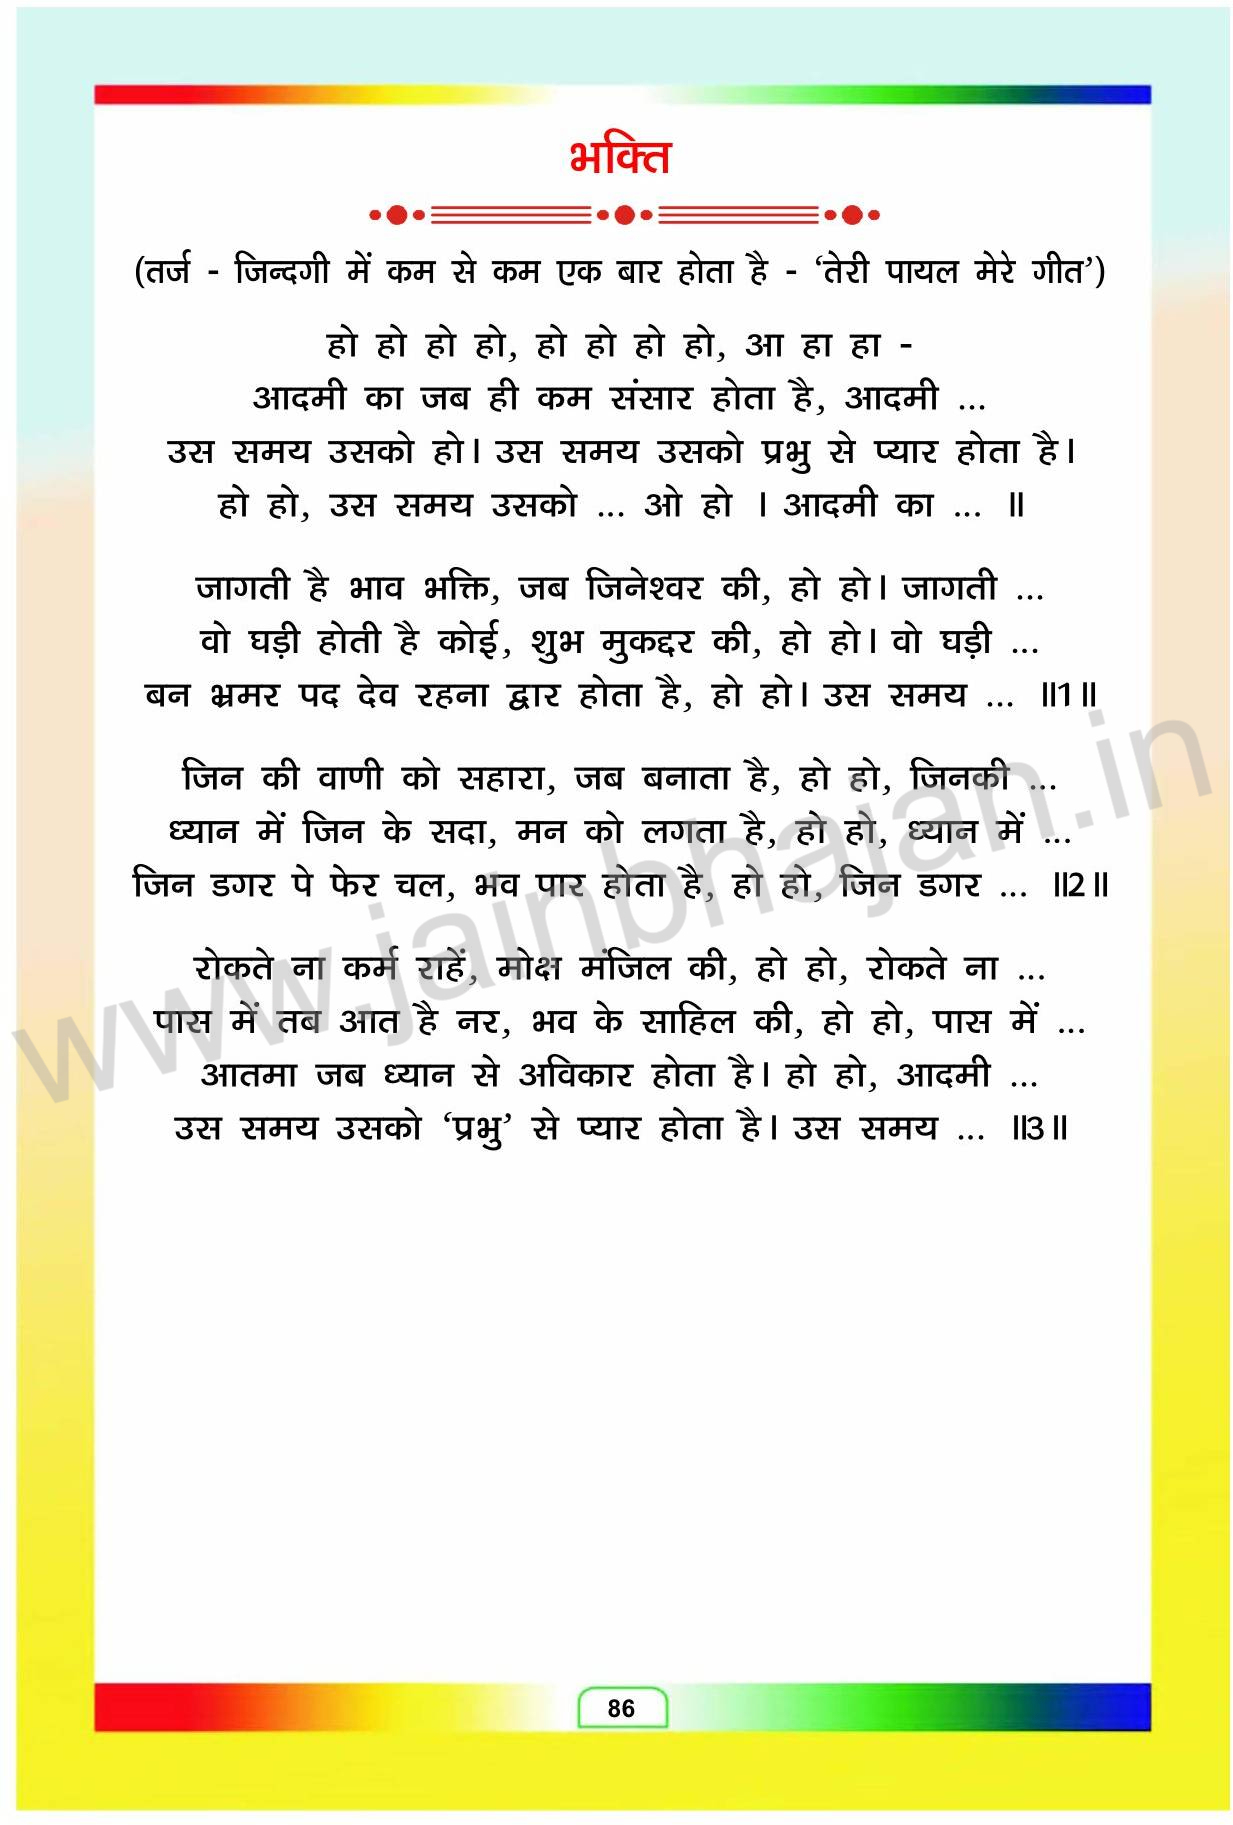 भक्ति
(तर्ज - जिन्दगी में कम से कम एक बार होता है - ‘तेरी पायल मेरे गीत’)
हो हो हो हो, हो हो हो हो, आ हा हा -
आदमी का जब ही कम संसार होता है, आदमी ...
उस समय उसको हो। उस समय उसको प्रभु से प्यार होता है।
हो हो, उस समय उसको ... ओ हो । आदमी का ... ॥
जागती है भाव भक्ति, जब जिनेश्वर की, हो हो। जागती ...
वो घड़ी होती है कोई, शुभ मुकद्दर की, हो हो। वो घड़ी ...
बन भ्रमर पद देव रहना द्वार होता है, हो हो। उस समय ... ॥1॥
जिन की वाणी को सहारा, जब बनाता है, हो हो, जिनकी ...
ध्यान में जिन के सदा, मन को लगता है, हो हो, ध्यान में ...
जिन डगर पे फेर चल, भव पार होता है, हो हो, जिन डगर ... ॥2॥
रोकते ना कर्म राहें, मोक्ष मंजिल की, हो हो, रोकते ना ...
पास में तब आत है नर, भव के साहिल की, हो हो, पास में ...
आतमा जब ध्यान से अविकार होता है। हो हो, आदमी ...
उस समय उसको ‘प्रभु’ से प्यार होता है। उस समय ... ॥3॥
www.jainbhajan.in
86